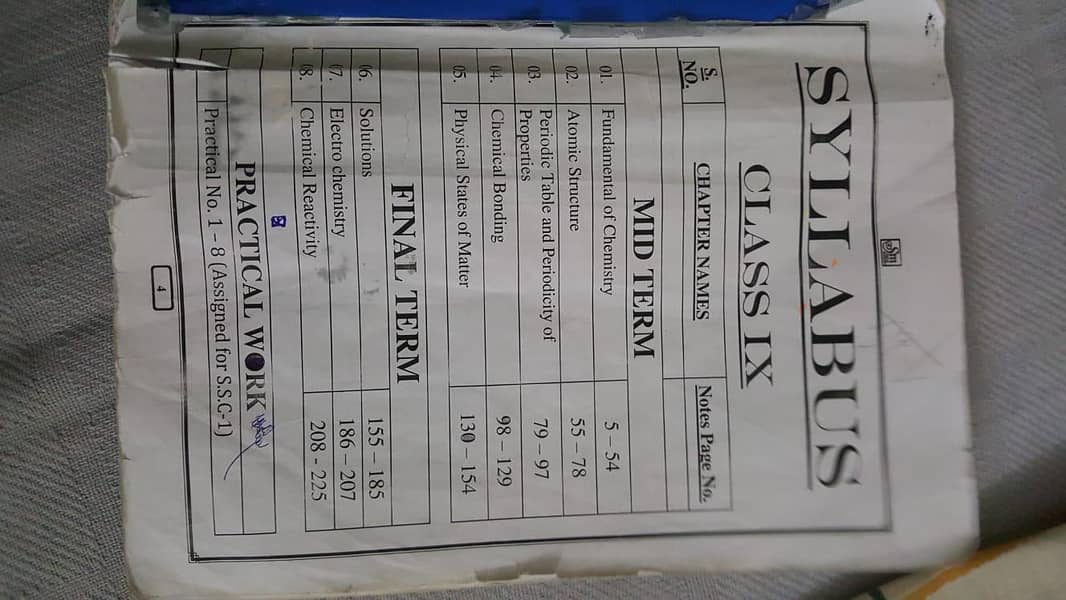 SYLLABUS
CLASS IX
S. NO. CHAPTER NAMES Notes Page No.
MID TERM
01. Fundamental of Chemistry 5 – 54
02. Atomic Structure 55 – 78
03. Periodic Table and Periodicity of Properties 79 – 97
04. Chemical Bonding 98 – 129
05. Physical States of Matter 130 – 154
FINAL TERM
06. Solutions 155 – 185
07. Electro chemistry 186 – 207
08. Chemical Reactivity 208 - 225
PRACTICAL WORK
Practical No. 1 – 8 (Assigned for S.S.C-1)
4